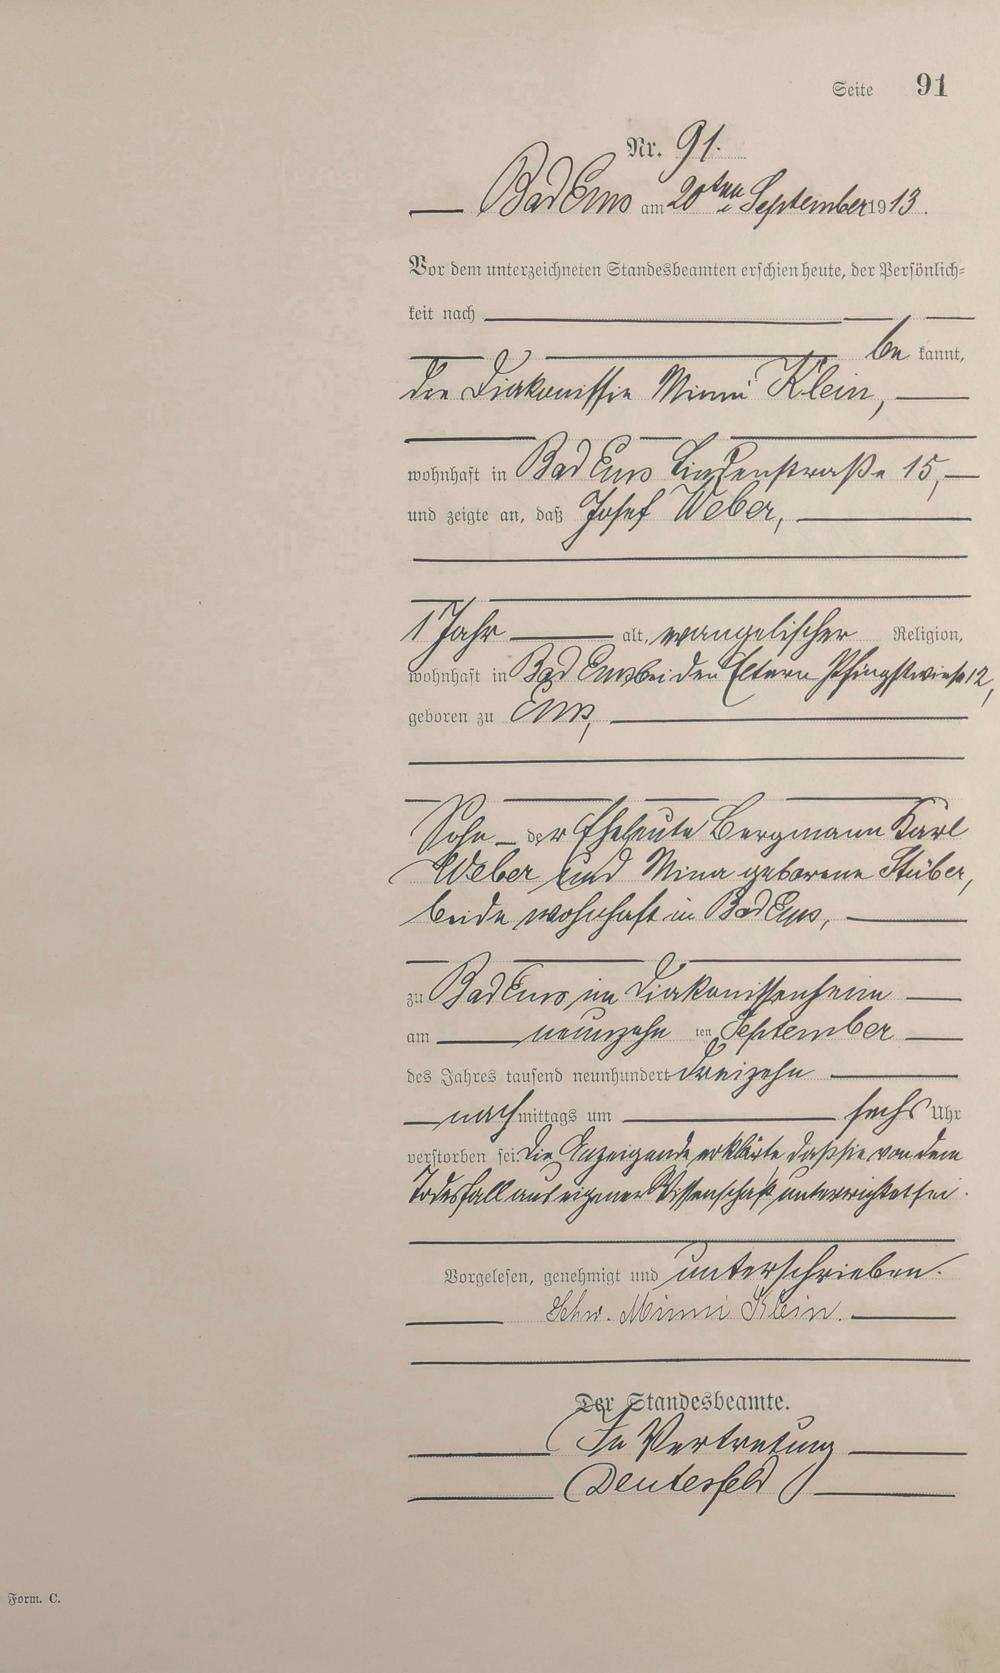 Seite 91
Nr. 91.
Bad Ems am 20ten September 1913.
Vor dem unterzeichneten Standesbeamten erschien heute, der Persönlich-
keit nach
be kannt,
die Diakonissin Minni Klein,
wohnhaft in Bad Ems Lindenstraße 15,
und zeigte an, daß Josef Weber,
1 Jahr alt, evangelischer Religion,
wohnhaft in Bad Ems bei den Eltern Pfingstwiese 12,
geboren zu Ems,
Sohn der Eheleute Bergmann Karl
Weber und Mina geborene Stüber,
beide wohnhaft in Bad Ems,
zu Bad Ems im Diakonissenheim
am neunzehn ten September
des Jahres tausend neunhundert dreizehn
nach mittags um sechs Uhr
verstorben sei. Die Anzeigende erklärte daß sie von dem
Todesfall aus eigener Wissenschaft unterrichtet sei.
Vorgelesen, genehmigt und unterschrieben.
Schw. Minni Klein.
Der Standesbeamte.
In Vertretung
Deutesfeld
Form. C.